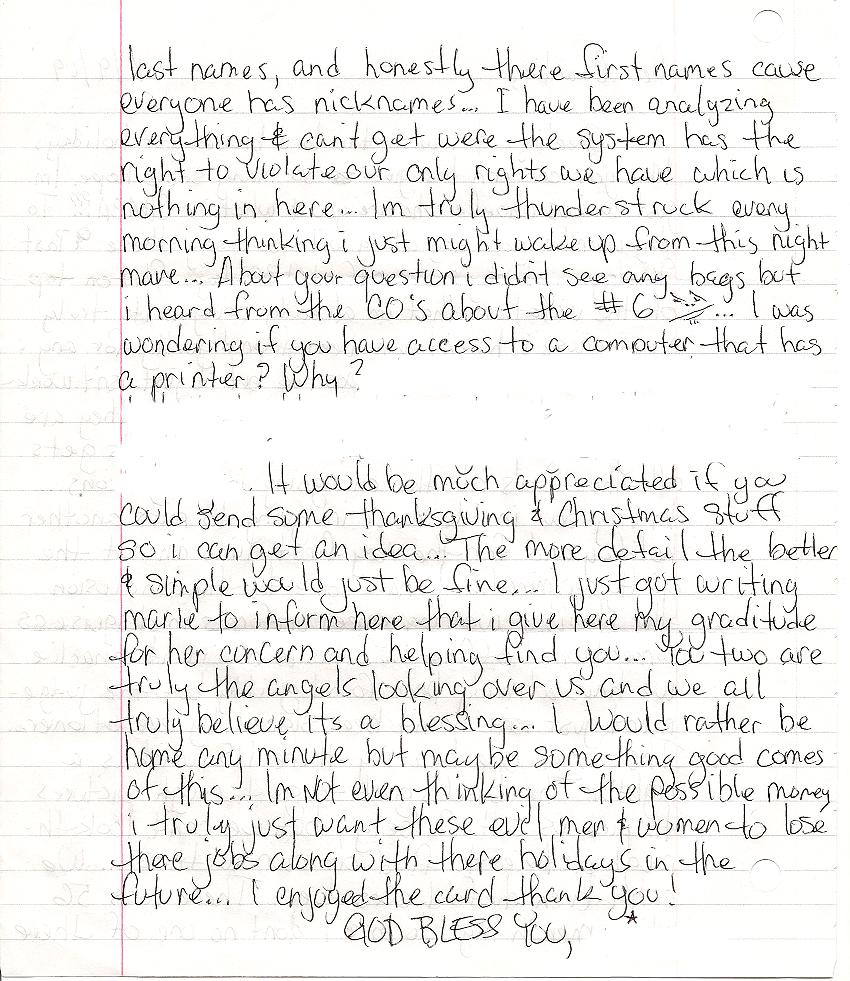 last names, and honestly there first names cause
everyone has nicknames... I have been analyzing
everything & can't get were the system has the
right to violate our only rights we have which is
nothing in here... Im truly thunderstruck every
morning thinking i just might wake up from this night
mare... About your question i didn't see any bags but
i heard from the CO's about the #6 ... I was
wondering if you have access to a computer that has
a printer? Why?
It would be much appreciated if you
could send some thanksgiving & Christmas stuff
so i can get an idea... The more detail the better
& simple would just be fine... I just got writing
marie to inform here that i give here my graditude
for her concern and helping find you... You two are
truly the angels looking over us and we all
truly believe its a blessing... I would rather be
home any minute but maybe something good comes
of this... Im not even thinking of the possible money
i truly just want these evil men & women to lose
there jobs along with there holidays in the
future... I enjoyed the card thank you!
GOD BLESS YOU,